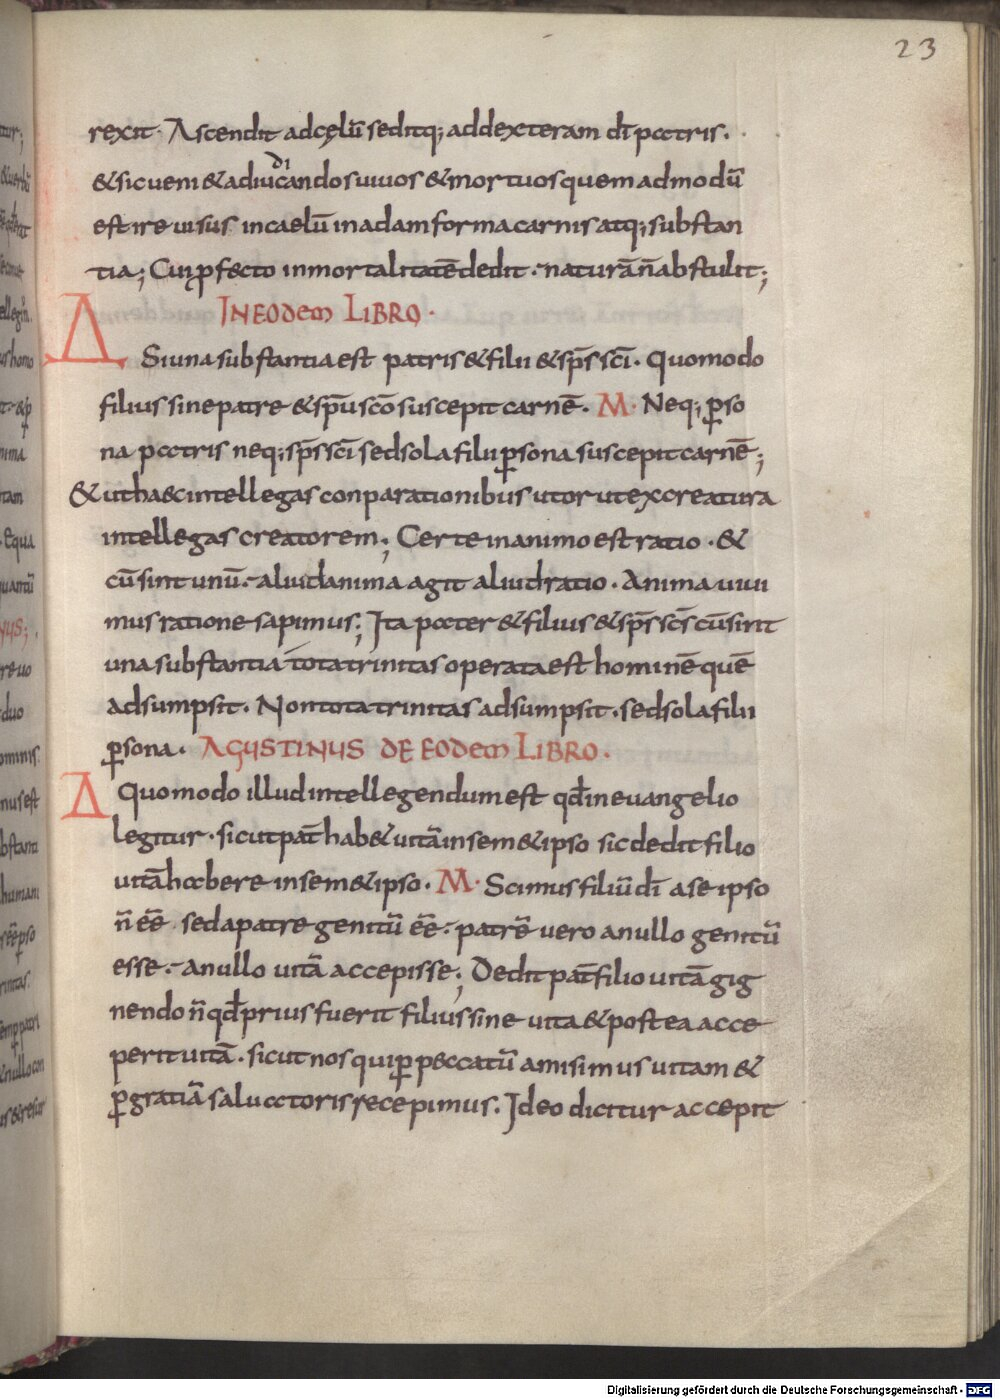 23
rexit· Ascendit adcęlū seditq; addexteram dī patris.
&sic veni&adiudicandos vivos &mortuos quem admodū
est ire visus in caelū in adam forma carnis atq; substan
tia; Cui ꝓfecto inmortalitatē dedit· naturā n̄ abstulit;
IN EODEM LIBRO·
Δ Si una substantia est patris &filii &sp̄s sc̄i· Quomodo
filius sine patre &sp̄u sc̄o suscepit carnē. M· Neq; ꝑso
na patris neq; sp̄s sc̄i sed sola filii ꝑsona suscepit carnē;
&ut haec intellegas conparationibus utor ut ex creatura
intellegas creatorem; Certe in animo est ratio· &
cū sint unū· aliud anima agit aliud ratio· Anima vivi
mus ratione sapimus; Ita pater &filius &sp̄s sc̄s cū sint
una substantia tota trinitas operata est hominē quē
adsumpsit. Non tota trinitas adsumpsit· sed sola filii
ꝑsona· AGUSTINUS DE EODEM LIBRO·
Δ Quomodo illud intellegendum est qd̄ in evangelio
legitur· sicut pat̄ hab& vitā in sem&ipso sic dedit filio
vitā habere in sem&ipso· M· Scimus filiū dī a se ipso
n̄ eē̄ sed a patre genitū eē̄· patrē vero a nullo genitū
esse· a nullo vitā accepisse; Dedit pat̄ filio vitā gig
nendo n̄ qd̄ prius fuerit filius sine vita &postea acce
perit vitā· sicut nos qui ꝑ peccatū amisimus vitam &
ꝑ gratiā salvatoris recepimus. Ideo dicitur accepit
Digitalisierung gefördert durch die Deutsche Forschungsgemeinschaft - DFG